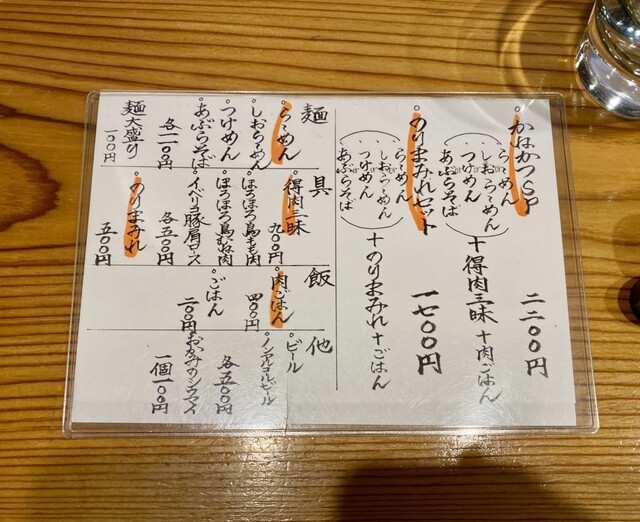 かねかつSP
らーめん
しおらーめん
つけめん
あぶらそば
＋得肉三昧＋肉ごはん
二二〇〇円
のりまみれセット
らーめん
しおらーめん
つけめん
あぶらそば
＋のりまみれ＋ごはん
一七〇〇円
麺
らーめん
しおらーめん
つけめん
あぶらそば
各一一〇〇円
麺大盛り
一〇〇円
具
得肉三昧
九〇〇円
ほろほろ鳥もも肉
ほろほろ鳥むね肉
イベリコ豚肩ロース
各五〇〇円
のりまみれ
五〇〇円
飯
肉ごはん
四〇〇円
ごはん
二〇〇円
他
ビール
ノンアルコールビール
各五〇〇円
おかみのシウマイ
一個一〇〇円